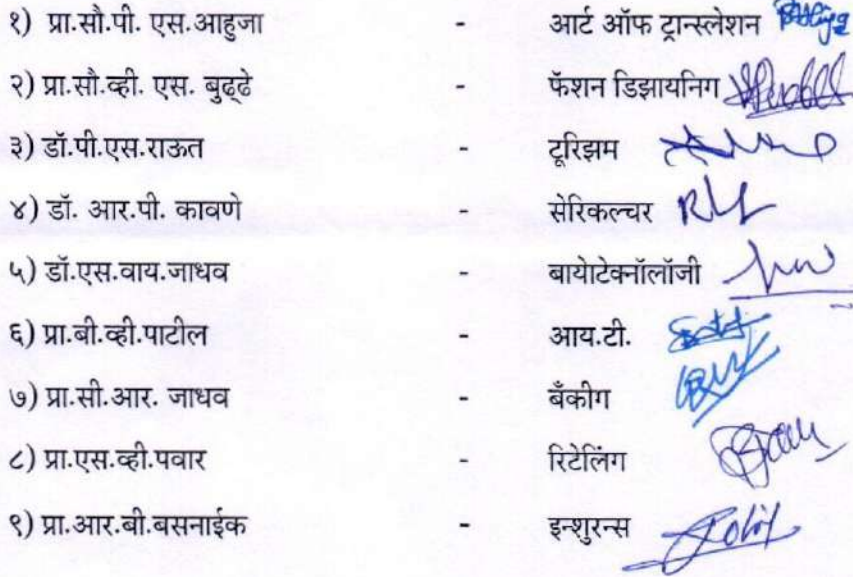 १) प्रा.सौ.पी. एस.आहुजा - आर्ट ऑफ ट्रान्स्लेशन
२) प्रा.सौ.व्ही. एस. बुद्ढे - फॅशन डिझायनिग
३) डॉ.पी.एस.राऊत - टूरिझम
४) डॉ. आर.पी. कावणे - सेरिकल्चर
५) डॉ.एस.वाय.जाधव - बायोटेक्नॉलॉजी
६) प्रा.बी.व्ही.पाटील - आय.टी.
७) प्रा.सी.आर. जाधव - बँकीग
८) प्रा.एस.व्ही.पवार - रिटेलिंग
९) प्रा.आर.बी.बसनाईक - इन्शुरन्स